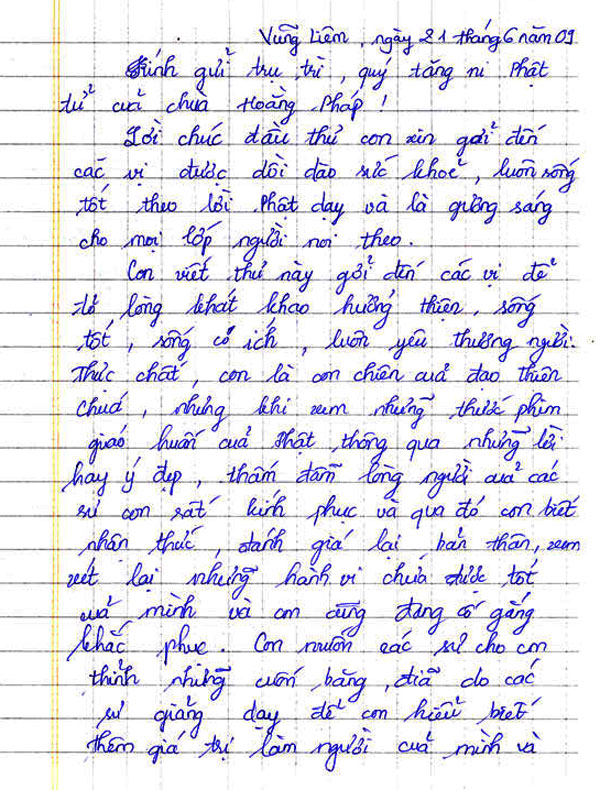 Vũng Liêm, ngày 21 tháng 6 năm 09
Kính gửi trụ trì, quý tăng ni Phật
tử của chùa Hoằng Pháp!
Lời chúc đầu thư con xin gởi đến
các vị được dồi dào sức khoẻ, luôn sống
tốt theo lời Phật dạy và là gương sáng
cho mọi lớp người noi theo.
Con viết thư này gởi đến các vị để
tỏ lòng khát khao hướng thiện, sống
tốt, sống có ích, luôn yêu thương người.
Thực chất, con là con chiên của đạo thiên
chúa, nhưng khi xem những thước phim
giáo huấn của Phật, thông qua những lời
hay ý đẹp, thấm đẫm lòng người của các
sư con rất kính phục và qua đó con biết
nhận thức, đánh giá lại bản thân, xem
xét lại những hành vi chưa được tốt
của mình và con cũng đang cố gắng
khắc phục. Con muốn các sư cho con
thỉnh những cuốn băng, đĩa do các
sư giảng dạy để con hiểu biết
thêm giá trị làm người của mình và